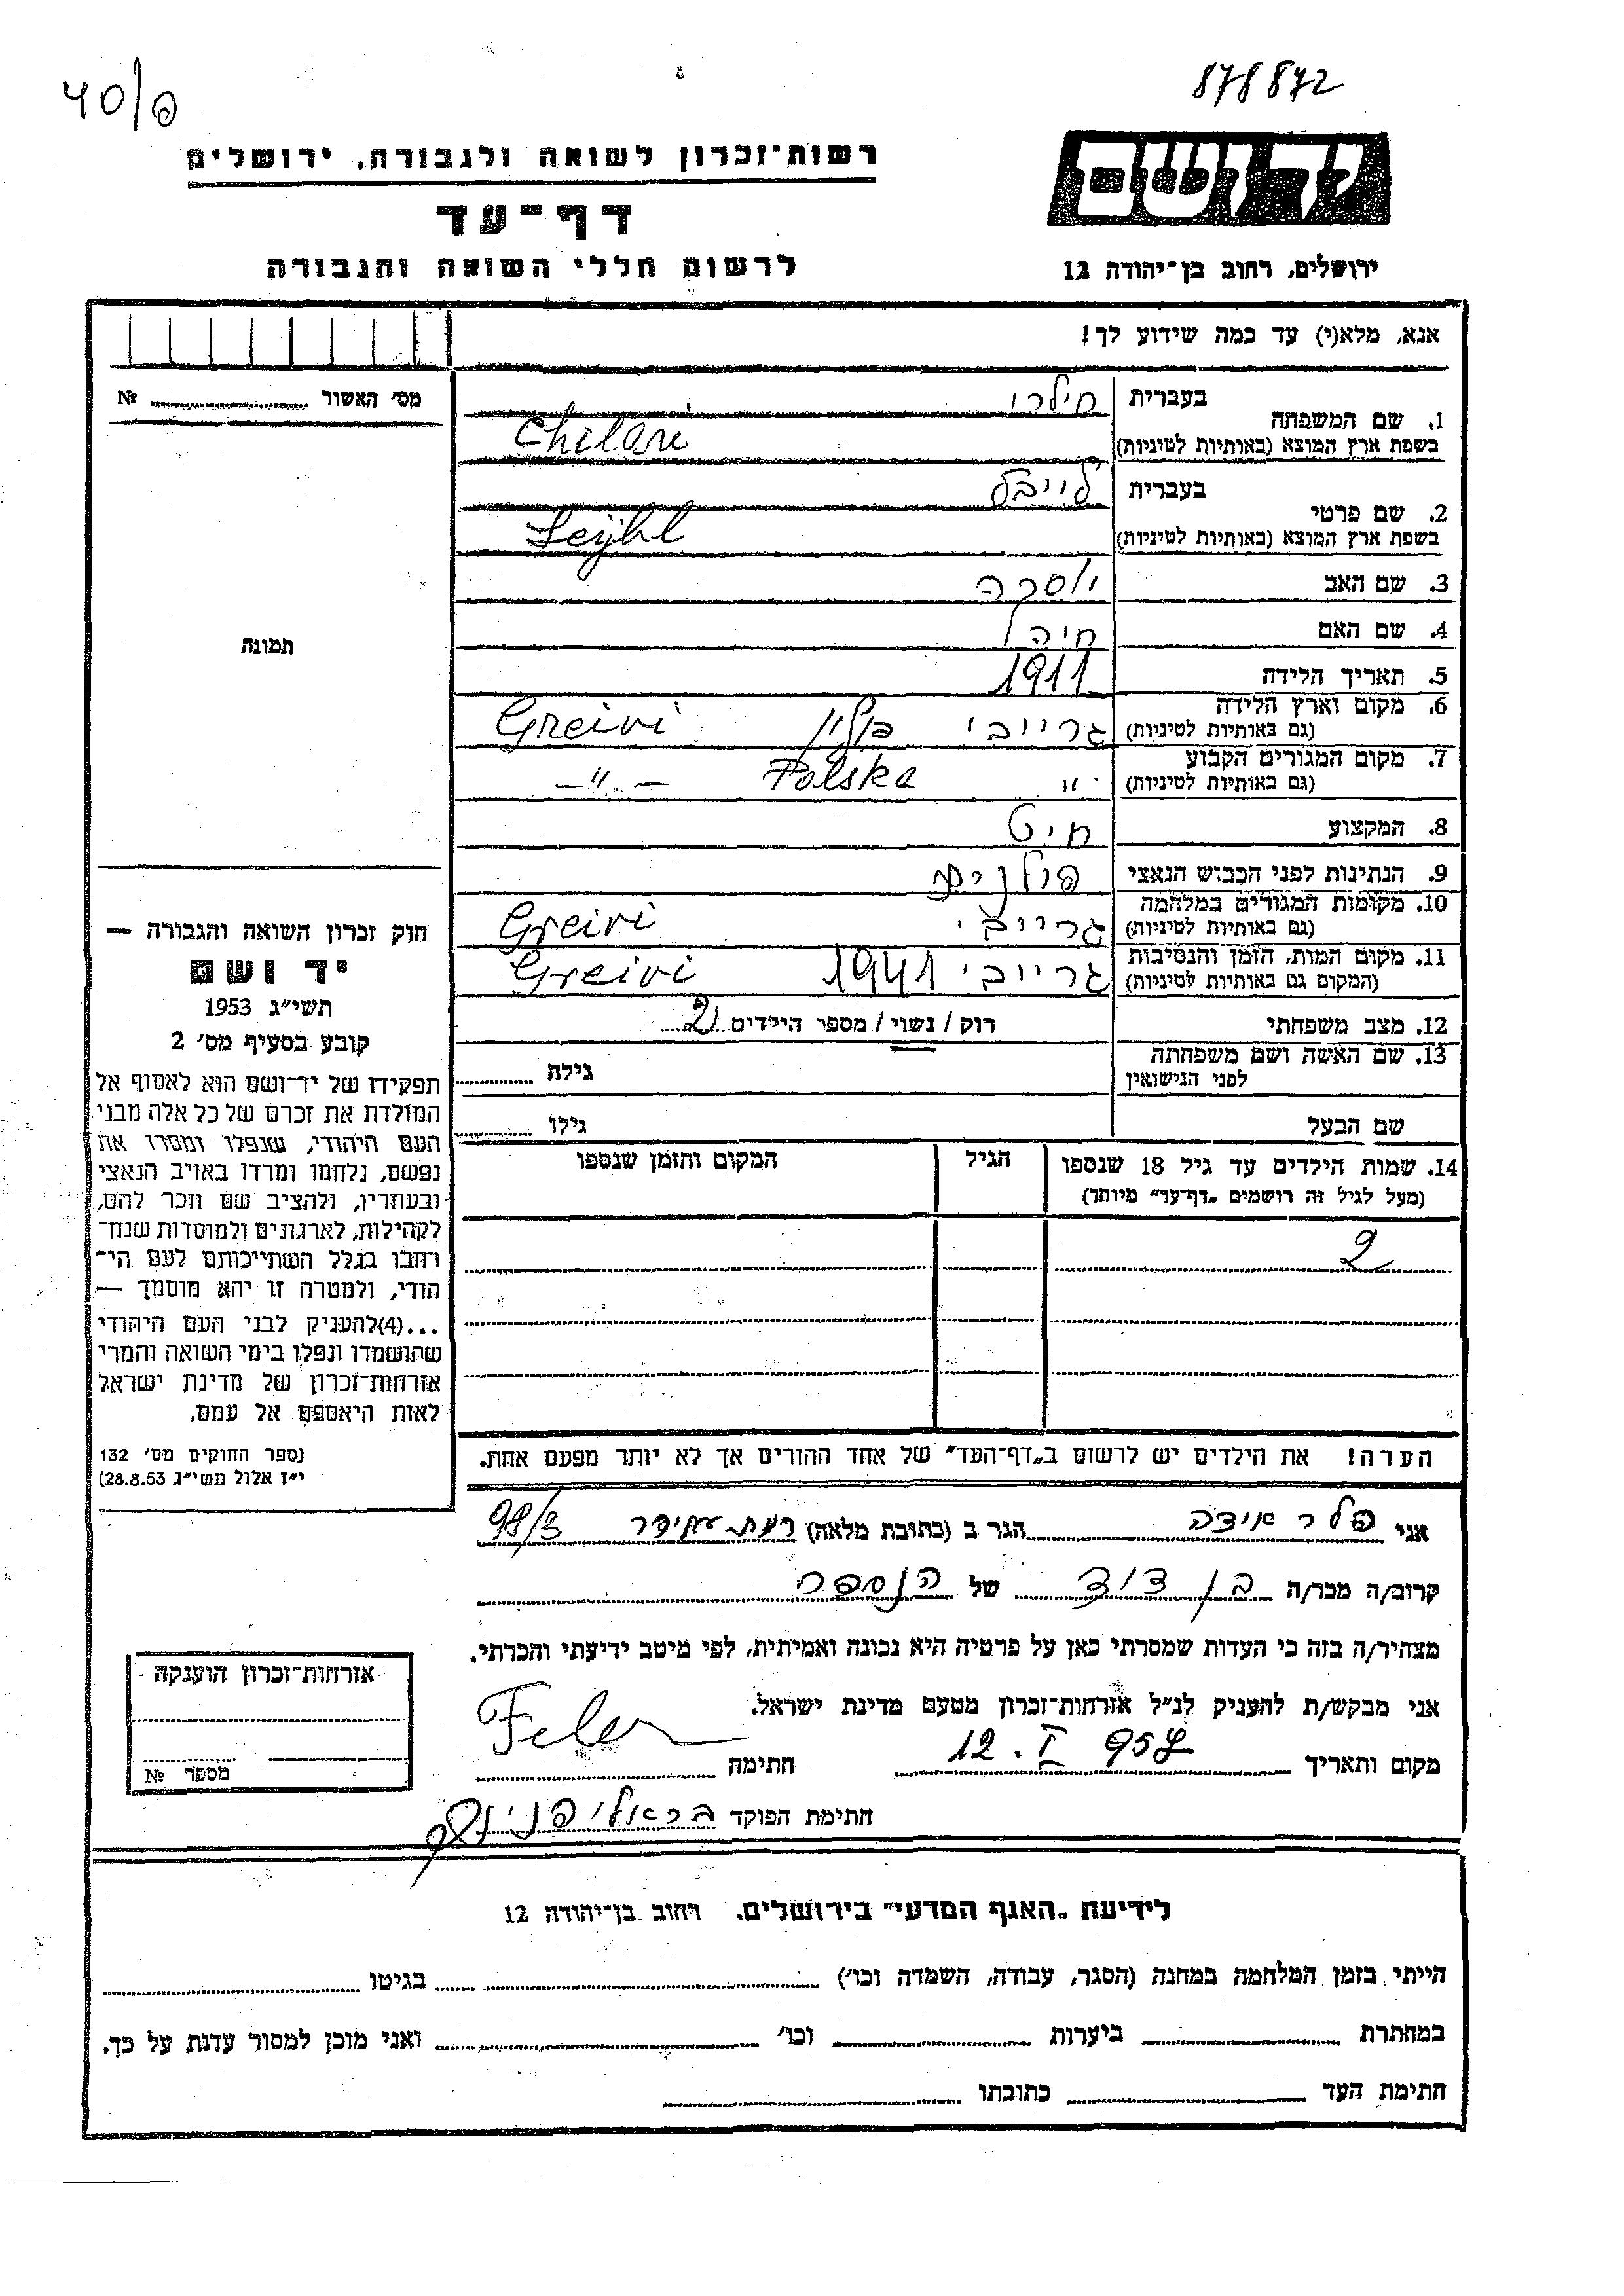 878872
40/פ
יד ושם
רשות־זכרון לשואה ולגבורה, ירושלים
דף־עד
לרשום חללי השואה והגבורה
ירושלים, רחוב בן־יהודה 12
אנא, מלא(י) עד כמה שידוע לך!
מס׳ האשור № 
1. שם המשפחה בעברית חילרי
בשפת ארץ המוצא (באותיות לטיניות) Chilari
2. שם פרטי בעברית לייבל
בשפת ארץ המוצא (באותיות לטיניות) Lejbl
3. שם האב
4. שם האם חיה
5. תאריך הלידה 1911
6. מקום וארץ הלידה (גם באותיות לטיניות) גרייבי פולין Greivi
7. מקום המגורים הקבוע (גם באותיות לטיניות) " Polska —"—
8. המקצוע חיט
9. הנתינות לפני הכבוש הנאצי פולנית
10. מקומות המגורים במלחמה (גם באותיות לטיניות) גרייבי Greivi
11. מקום המות, הזמן והנסיבות (המקום גם באותיות לטיניות) גרייבי 1941 Greivi
12. מצב משפחתי רוק / נשוי / מספר הילדים 2
13. שם האשה ושם משפחתה לפני הנישואין גילה
שם הבעל גילו
14. שמות הילדים עד גיל 18 שנספו (מעל לגיל זה רושמים „דף־עד״ מיוחד) הגיל המקום והזמן שנספו
2
הערה! את הילדים יש לרשום ב„דף־העד״ של אחד ההורים אך לא יותר מפעם אחת.
תמונה
חוק זכרון השואה והגבורה —
יד ושם
תשי״ג 1953
קובע בסעיף מס׳ 2
תפקידו של יד־ושם הוא לאסוף אל
המולדת את זכרם של כל אלה מבני
העם היהודי, שנפלו ומסרו את
נפשם, נלחמו ומרדו באויב הנאצי
ובעוזריו, ולהציב שם וזכר להם,
לקהילות, לארגונים ולמוסדות שנח־
רחבו בגלל השתייכותם לעם הי־
הודי, ולמטרה זו יהא מוסמך —
...(4)להעניק לבני העם היהודי
שהושמדו ונפלו בימי השואה והמרי
אזרחות־זכרון של מדינת ישראל
לאות היאספם אל עמם.
(ספר החוקים מס׳ 132
י״ז אלול תשי״ג 28.8.53)
אני פלר אידה הגר ב (כתובת מלאה) רמת 98/3
קרוב/ה מכר/ה בן דוד של הנספה
מצהיר/ה בזה כי העדות שמסרתי כאן על פרטיה היא נכונה ואמיתית, לפי מיטב ידיעתי והכרתי.
אני מבקש/ת להעניק לנ״ל אזרחות־זכרון מטעם מדינת ישראל.
מקום ותאריך 12. I 957 חתימה Feler
חתימת הפוקד
אזרחות־זכרון הוענקה
מספר №
לידיעת „האגף המדעי״ בירושלים, רחוב בן־יהודה 12
הייתי בזמן המלחמה במחנה (הסגר, עבודה, השמדה וכו׳) בגיטו
במחתרת ביערות וכו׳ ואני מוכן למסור עדות על כך.
חתימת העד כתובתו